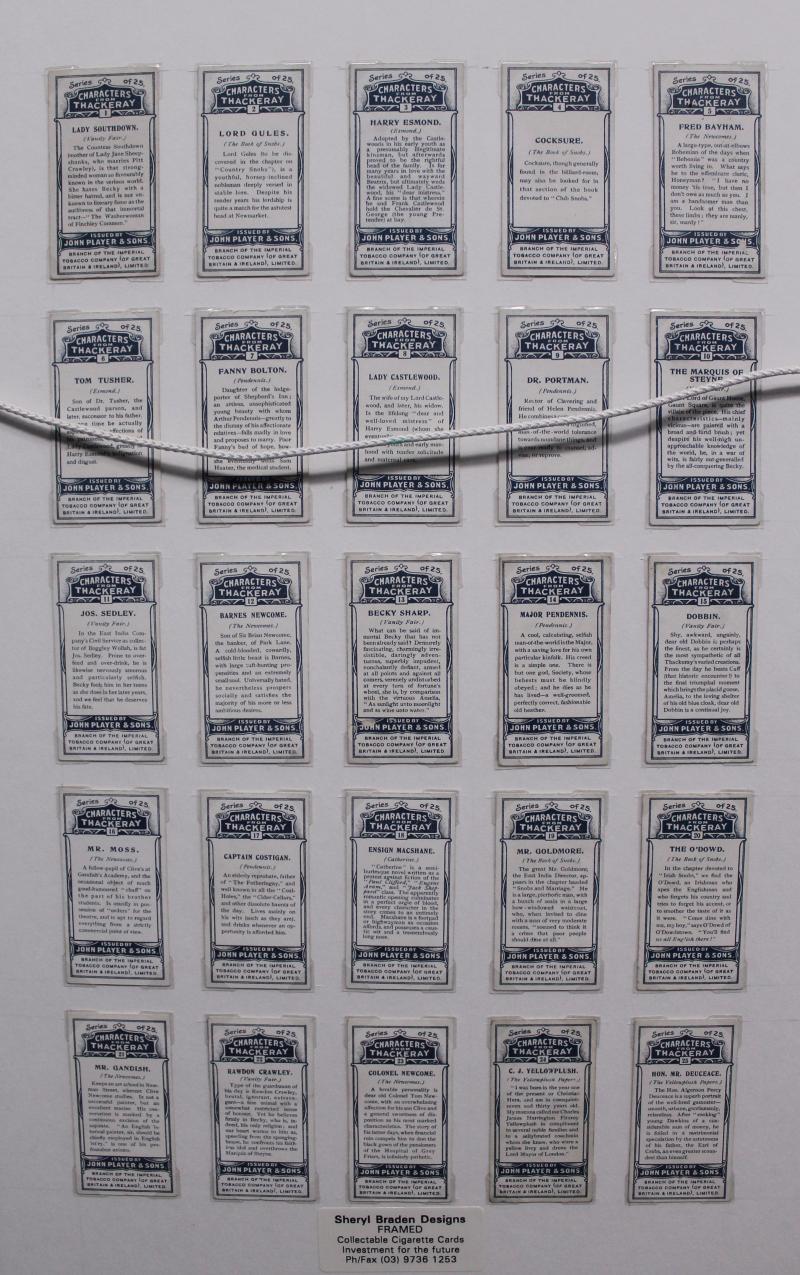 Series of 25.
CHARACTERS
FROM
THACKERAY
1
LADY SOUTHDOWN.
(Vanity Fair.)
The Countess Southdown
(mother of Lady Jane Sheep-
shanks, who marries Pitt
Crawley), is that strong-
minded woman so favourably
known in the serious world.
She hates Becky with a
bitter hatred, and is not un-
known to literary fame as the
authoress of that immortal
tract—"The Washerwoman
of Finchley Common."
ISSUED BY
JOHN PLAYER & SONS.
BRANCH OF THE IMPERIAL
TOBACCO COMPANY (OF GREAT
BRITAIN & IRELAND), LIMITED.
Series of 25.
CHARACTERS
FROM
THACKERAY
2
LORD GULES.
(The Book of Snobs.)
Lord Gules (to be dis-
covered in the chapter on
"Country Snobs"), is a
youthful, horsey-inclined
nobleman deeply versed in
stable lore. Despite his
tender years his lordship is
quite a match for the astutest
head at Newmarket.
ISSUED BY
JOHN PLAYER & SONS.
BRANCH OF THE IMPERIAL
TOBACCO COMPANY (OF GREAT
BRITAIN & IRELAND), LIMITED.
Series of 25.
CHARACTERS
FROM
THACKERAY
3
HARRY ESMOND.
(Esmond.)
Adopted by the Castle-
woods in his early youth as
a presumably illegitimate
kinsman, but afterwards
proved to be the rightful
head of the family. Is for
many years in love with the
beautiful and wayward
Beatrix, but ultimately weds
the widowed Lady Castle-
wood, his "dear mistress."
A fine scene is that wherein
he and Frank Castlewood
hold the Chevalier de St.
George (the young Pre-
tender) at bay.
ISSUED BY
JOHN PLAYER & SONS.
BRANCH OF THE IMPERIAL
TOBACCO COMPANY (OF GREAT
BRITAIN & IRELAND), LIMITED.
Series of 25.
CHARACTERS
FROM
THACKERAY
4
COCKSURE.
(The Book of Snobs.)
Cocksure, though generally
found in the billiard-room;
may also be looked for in
that section of the book
devoted to "Club Snobs."
ISSUED BY
JOHN PLAYER & SONS.
BRANCH OF THE IMPERIAL
TOBACCO COMPANY (OF GREAT
BRITAIN & IRELAND), LIMITED.
Series of 25.
CHARACTERS
FROM
THACKERAY
5
FRED BAYHAM.
(The Newcomes.)
A large-type, out-at-elbows
Bohemian of the days when
"Bohemia" was a country
worth living in. What says
he to the effeminate cleric,
Honeyman? "I have no
money 'tis true, but then I
don't owe as much as you. I
am a handsomer man than
you. Look at this chest,
these limbs; they are manly,
sir, manly!"
ISSUED BY
JOHN PLAYER & SONS.
BRANCH OF THE IMPERIAL
TOBACCO COMPANY (OF GREAT
BRITAIN & IRELAND), LIMITED.
Series of 25.
CHARACTERS
FROM
THACKERAY
6
TOM TUSHER.
(Esmond.)
Son of Dr. Tusher, the
Castlewood parson, and
later, successor to his father.
time he actually
Harry Esmond's indignation
and disgust.
ISSUED BY
JOHN PLAYER & SONS.
BRANCH OF THE IMPERIAL
TOBACCO COMPANY (OF GREAT
BRITAIN & IRELAND), LIMITED.
Series of 25.
CHARACTERS
FROM
THACKERAY
7
FANNY BOLTON.
(Pendennis.)
Daughter of the lodge-
porter of Shepherd's Inn;
an artless, unsophisticated
young beauty with whom
Arthur Pendennis—greatly to
the dismay of his affectionate
relatives—falls madly in love
and proposes to marry. Poor
Fanny's bud of hope, how-
she eventually weds Sam
Huxter, the medical student.
ISSUED BY
JOHN PLAYER & SONS.
BRANCH OF THE IMPERIAL
TOBACCO COMPANY (OF GREAT
BRITAIN & IRELAND), LIMITED.
Series of 25.
CHARACTERS
FROM
THACKERAY
8
LADY CASTLEWOOD.
(Esmond.)
The wife of my Lord Castle-
wood, and later, his widow.
Is the lifelong "dear and
well-loved mistress" of
Harry Esmond (whom she
and early man-
hood with tender solicitude
and maternal care.
ISSUED BY
JOHN PLAYER & SONS.
BRANCH OF THE IMPERIAL
TOBACCO COMPANY (OF GREAT
BRITAIN & IRELAND), LIMITED.
Series of 25.
CHARACTERS
FROM
THACKERAY
9
DR. PORTMAN.
(Pendennis.)
Rector of Clavering and
friend of Helen Pendennis.
He combines
man-of-the-world tolerance
towards mundane things, and
ISSUED BY
JOHN PLAYER & SONS.
BRANCH OF THE IMPERIAL
TOBACCO COMPANY (OF GREAT
BRITAIN & IRELAND), LIMITED.
Series of 25.
CHARACTERS
FROM
THACKERAY
10
THE MARQUIS OF
STEYNE.
Lord of Gaunt House,
Gaunt Square, is quite the
villain of the piece. His chief
characteristics—mainly
vicious—are paired with a
broad and fond brush; yet
despite his well-nigh un-
approachable knowledge of
the world, he, in a war of
wits, is fairly out-generalled
by the all-conquering Becky.
ISSUED BY
JOHN PLAYER & SONS.
BRANCH OF THE IMPERIAL
TOBACCO COMPANY (OF GREAT
BRITAIN & IRELAND), LIMITED.
Series of 25.
CHARACTERS
FROM
THACKERAY
11
JOS. SEDLEY.
(Vanity Fair.)
In the East India Com-
pany's Civil Service as collec-
tor of Boggley Wollah, is fat
Jos. Sedley. Prone to over-
feed and over-drink, he is
likewise nervously amorous
and particularly selfish.
Becky fools him in her teens
as she does in her later years,
and we feel that he deserves
his fate.
ISSUED BY
JOHN PLAYER & SONS.
BRANCH OF THE IMPERIAL
TOBACCO COMPANY (OF GREAT
BRITAIN & IRELAND), LIMITED.
Series of 25.
CHARACTERS
FROM
THACKERAY
12
BARNES NEWCOME.
(The Newcomes.)
Son of Sir Brian Newcome,
the banker, of Park Lane.
A cold-blooded, cowardly,
selfish little beast is Barnes,
with large tuft-hunting pro-
pensities and an extremely
small soul. Universally hated,
he nevertheless prospers
socially and satisfies the
majority of his more or less
ambitious desires.
ISSUED BY
JOHN PLAYER & SONS.
BRANCH OF THE IMPERIAL
TOBACCO COMPANY (OF GREAT
BRITAIN & IRELAND), LIMITED.
Series of 25.
CHARACTERS
FROM
THACKERAY
13
BECKY SHARP.
(Vanity Fair.)
What can be said of im-
mortal Becky that has not
been already said? Demurely
fascinating, charmingly irre-
sistible, daringly adven-
turous, superbly impudent,
nonchalantly defiant, armed
at all points and against all
comers, serenely undisturbed
at every turn of fortune's
wheel, she is, by comparison
with the virtuous Amelia,
"As sunlight unto moonlight
and as wine unto water."
ISSUED BY
JOHN PLAYER & SONS.
BRANCH OF THE IMPERIAL
TOBACCO COMPANY (OF GREAT
BRITAIN & IRELAND), LIMITED.
Series of 25.
CHARACTERS
FROM
THACKERAY
14
MAJOR PENDENNIS.
(Pendennis.)
A cool, calculating, selfish
man-of-the-world is the Major,
with a saving love for his own
particular kinfolk. His creed
is a simple one. There is
but one god, Society, whose
behests must be blindly
obeyed; and he dies as he
has lived—a well-groomed,
perfectly correct, fashionable
old heathen.
ISSUED BY
JOHN PLAYER & SONS.
BRANCH OF THE IMPERIAL
TOBACCO COMPANY (OF GREAT
BRITAIN & IRELAND), LIMITED.
Series of 25.
CHARACTERS
FROM
THACKERAY
15
DOBBIN.
(Vanity Fair.)
Shy, awkward, ungainly,
dear old Dobbin is perhaps
the finest, as he certainly is
the most sympathetic of all
Thackeray's varied creations.
From the day he beats Cuff
(that historic encounter!) to
the final triumphal moment
which brings the placid goose,
Amelia, to the loving shelter
of his old blue cloak, dear old
Dobbin is a continual joy.
ISSUED BY
JOHN PLAYER & SONS.
BRANCH OF THE IMPERIAL
TOBACCO COMPANY (OF GREAT
BRITAIN & IRELAND), LIMITED.
Series of 25.
CHARACTERS
FROM
THACKERAY
16
MR. MOSS.
(The Newcomes.)
A fellow-pupil of Clive's at
Gandish's Academy, and the
occasional object of much
good-humoured "chaff" on
the part of his brother
students. Is usually in pos-
session of "orders" for the
theatre, and is apt to regard
everything from a strictly
commercial point of view.
ISSUED BY
JOHN PLAYER & SONS.
BRANCH OF THE IMPERIAL
TOBACCO COMPANY (OF GREAT
BRITAIN & IRELAND), LIMITED.
Series of 25.
CHARACTERS
FROM
THACKERAY
17
CAPTAIN COSTIGAN.
(Pendennis.)
An elderly reprobate, father
of "The Fotheringay," and
well known to all the "Coal-
Holes," the "Cider-Cellars,"
and other dissolute haunts of
the day. Lives mainly on
his wits (such as they are),
and drinks whenever an op-
portunity is afforded him.
ISSUED BY
JOHN PLAYER & SONS.
BRANCH OF THE IMPERIAL
TOBACCO COMPANY (OF GREAT
BRITAIN & IRELAND), LIMITED.
Series of 25.
CHARACTERS
FROM
THACKERAY
18
ENSIGN MACSHANE.
(Catherine.)
"Catherine" is a semi-
burlesque novel written as a
protest against fiction of the
"Paul Clifford," "Eugene
Aram," and "Jack Shep-
pard" class. The apparently
romantic opening culminates
in a perfect orgie of blood,
and every character in the
story comes to an untimely
end. Macshane is a footpad
or highwayman as occasion
affords, and possesses a caus-
tic wit and a tremendously
long nose.
ISSUED BY
JOHN PLAYER & SONS.
BRANCH OF THE IMPERIAL
TOBACCO COMPANY (OF GREAT
BRITAIN & IRELAND), LIMITED.
Series of 25.
CHARACTERS
FROM
THACKERAY
19
MR. GOLDMORE.
(The Book of Snobs.)
The great Mr. Goldmore,
the East India Director, ap-
pears in the chapter headed
"Snobs and Marriage." He
is a large, plethoric man, with
a bunch of seals in a large
bow-windowed waistcoat,
who, when invited to dine
with a man of very moderate
means, "seemed to think it
a crime that poor people
should dine at all."
ISSUED BY
JOHN PLAYER & SONS.
BRANCH OF THE IMPERIAL
TOBACCO COMPANY (OF GREAT
BRITAIN & IRELAND), LIMITED.
Series of 25.
CHARACTERS
FROM
THACKERAY
20
THE O'DOWD.
(The Book of Snobs.)
In the chapter devoted to
"Irish Snobs," we find the
O'Dowd, an Irishman who
apes the Englishman and
who forgets his country and
tries to forget his accent, or
to smother the taste of it as
it were. "Come dine with
me, my boy," says O'Dowd of
O'Dowdstown. "You'll find
us all English there!"
ISSUED BY
JOHN PLAYER & SONS.
BRANCH OF THE IMPERIAL
TOBACCO COMPANY (OF GREAT
BRITAIN & IRELAND), LIMITED.
Series of 25.
CHARACTERS
FROM
THACKERAY
21
MR. GANDISH.
(The Newcomes.)
Keeps an art school in New-
man Street, whereat Clive
Newcome studies. Is not a
successful painter, but an
excellent master. His con-
versation is marked by a
continuous excision of the
aspirate. "An English 'is-
torical painter, sir, should be
chiefly employed in English
'istry," is one of his pro-
foundest axioms.
ISSUED BY
JOHN PLAYER & SONS.
BRANCH OF THE IMPERIAL
TOBACCO COMPANY (OF GREAT
BRITAIN & IRELAND), LIMITED.
Series of 25.
CHARACTERS
FROM
THACKERAY
22
RAWDON CRAWLEY.
(Vanity Fair.)
Type of the guardsman of
his day is Rawdon Crawley,
brutal, ignorant, extrava-
gant—a fine animal with a
somewhat restricted sense
of honour. Yet he believes
firmly in Becky, who is, in-
deed, his only religion; and
our heart warms to him as,
speeding from the sponging-
house, he confronts his faith-
less idol and overthrows the
Marquis of Steyne.
ISSUED BY
JOHN PLAYER & SONS.
BRANCH OF THE IMPERIAL
TOBACCO COMPANY (OF GREAT
BRITAIN & IRELAND), LIMITED.
Series of 25.
CHARACTERS
FROM
THACKERAY
23
COLONEL NEWCOME.
(The Newcomes.)
A lovable personality is
dear old Colonel Tom New-
come, with an overwhelming
affection for his son Clive and
a general sweetness of dis-
position as his most marked
characteristics. The story of
his latter days, when financial
ruin compels him to don the
black gown of the pensioners
of the Hospital of Grey
Friars, is infinitely pathetic.
ISSUED BY
JOHN PLAYER & SONS.
BRANCH OF THE IMPERIAL
TOBACCO COMPANY (OF GREAT
BRITAIN & IRELAND), LIMITED.
Series of 25.
CHARACTERS
FROM
THACKERAY
24
C. J. YELLOWPLUSH.
(The Yellowplush Papers.)
"I was born in the year one
of the present or Christian
Hera, and am in consquints
seven and thirty years old.
My mamma called me Charles
James Harrington Fitzroy
Yellowplush in compliment
to several noble families and
to a sellybrated coachmin
whom she knew, who wore a
yellow livry and drove the
Lord Mayor of London."
ISSUED BY
JOHN PLAYER & SONS.
BRANCH OF THE IMPERIAL
TOBACCO COMPANY (OF GREAT
BRITAIN & IRELAND), LIMITED.
Series of 25.
CHARACTERS
FROM
THACKERAY
25
HON. MR. DEUCEACE.
(The Yellowplush Papers.)
The Hon. Algernon Percy
Deuceace is a superb portrait
of the well-bred gamester—
smooth, urbane, gentlemanly,
relentless. After "rooking"
young Dawkins of a con-
siderable sum of money, he
is foiled in a matrimonial
speculation by the astuteness
of his father, the Earl of
Crabs, an even greater scoun-
drel than himself.
ISSUED BY
JOHN PLAYER & SONS.
BRANCH OF THE IMPERIAL
TOBACCO COMPANY (OF GREAT
BRITAIN & IRELAND), LIMITED.
Sheryl Braden Designs
FRAMED
Collectable Cigarette Cards
Investment for the future
Ph/Fax (03) 9736 1253